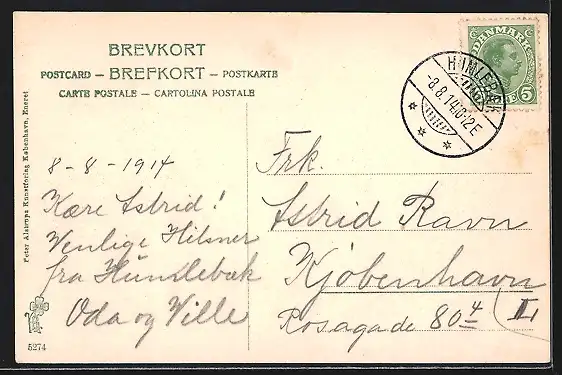 BREVKORT
POSTCARD – BREFKORT – POSTKARTE
CARTE POSTALE – CARTOLINA POSTALE
Peter Alstrups Kunstforlag København, Eneret
5274
8-8-1914
Kære Astrid!
Venlige Hilsner
fra Humlebæk
Oda og Wille
DANMARK
5
HUMLEBÆK
-8.8.14.10-12E
Frk.
Astrid Ravn
Kjøbenhavn
Rosagade 80 4